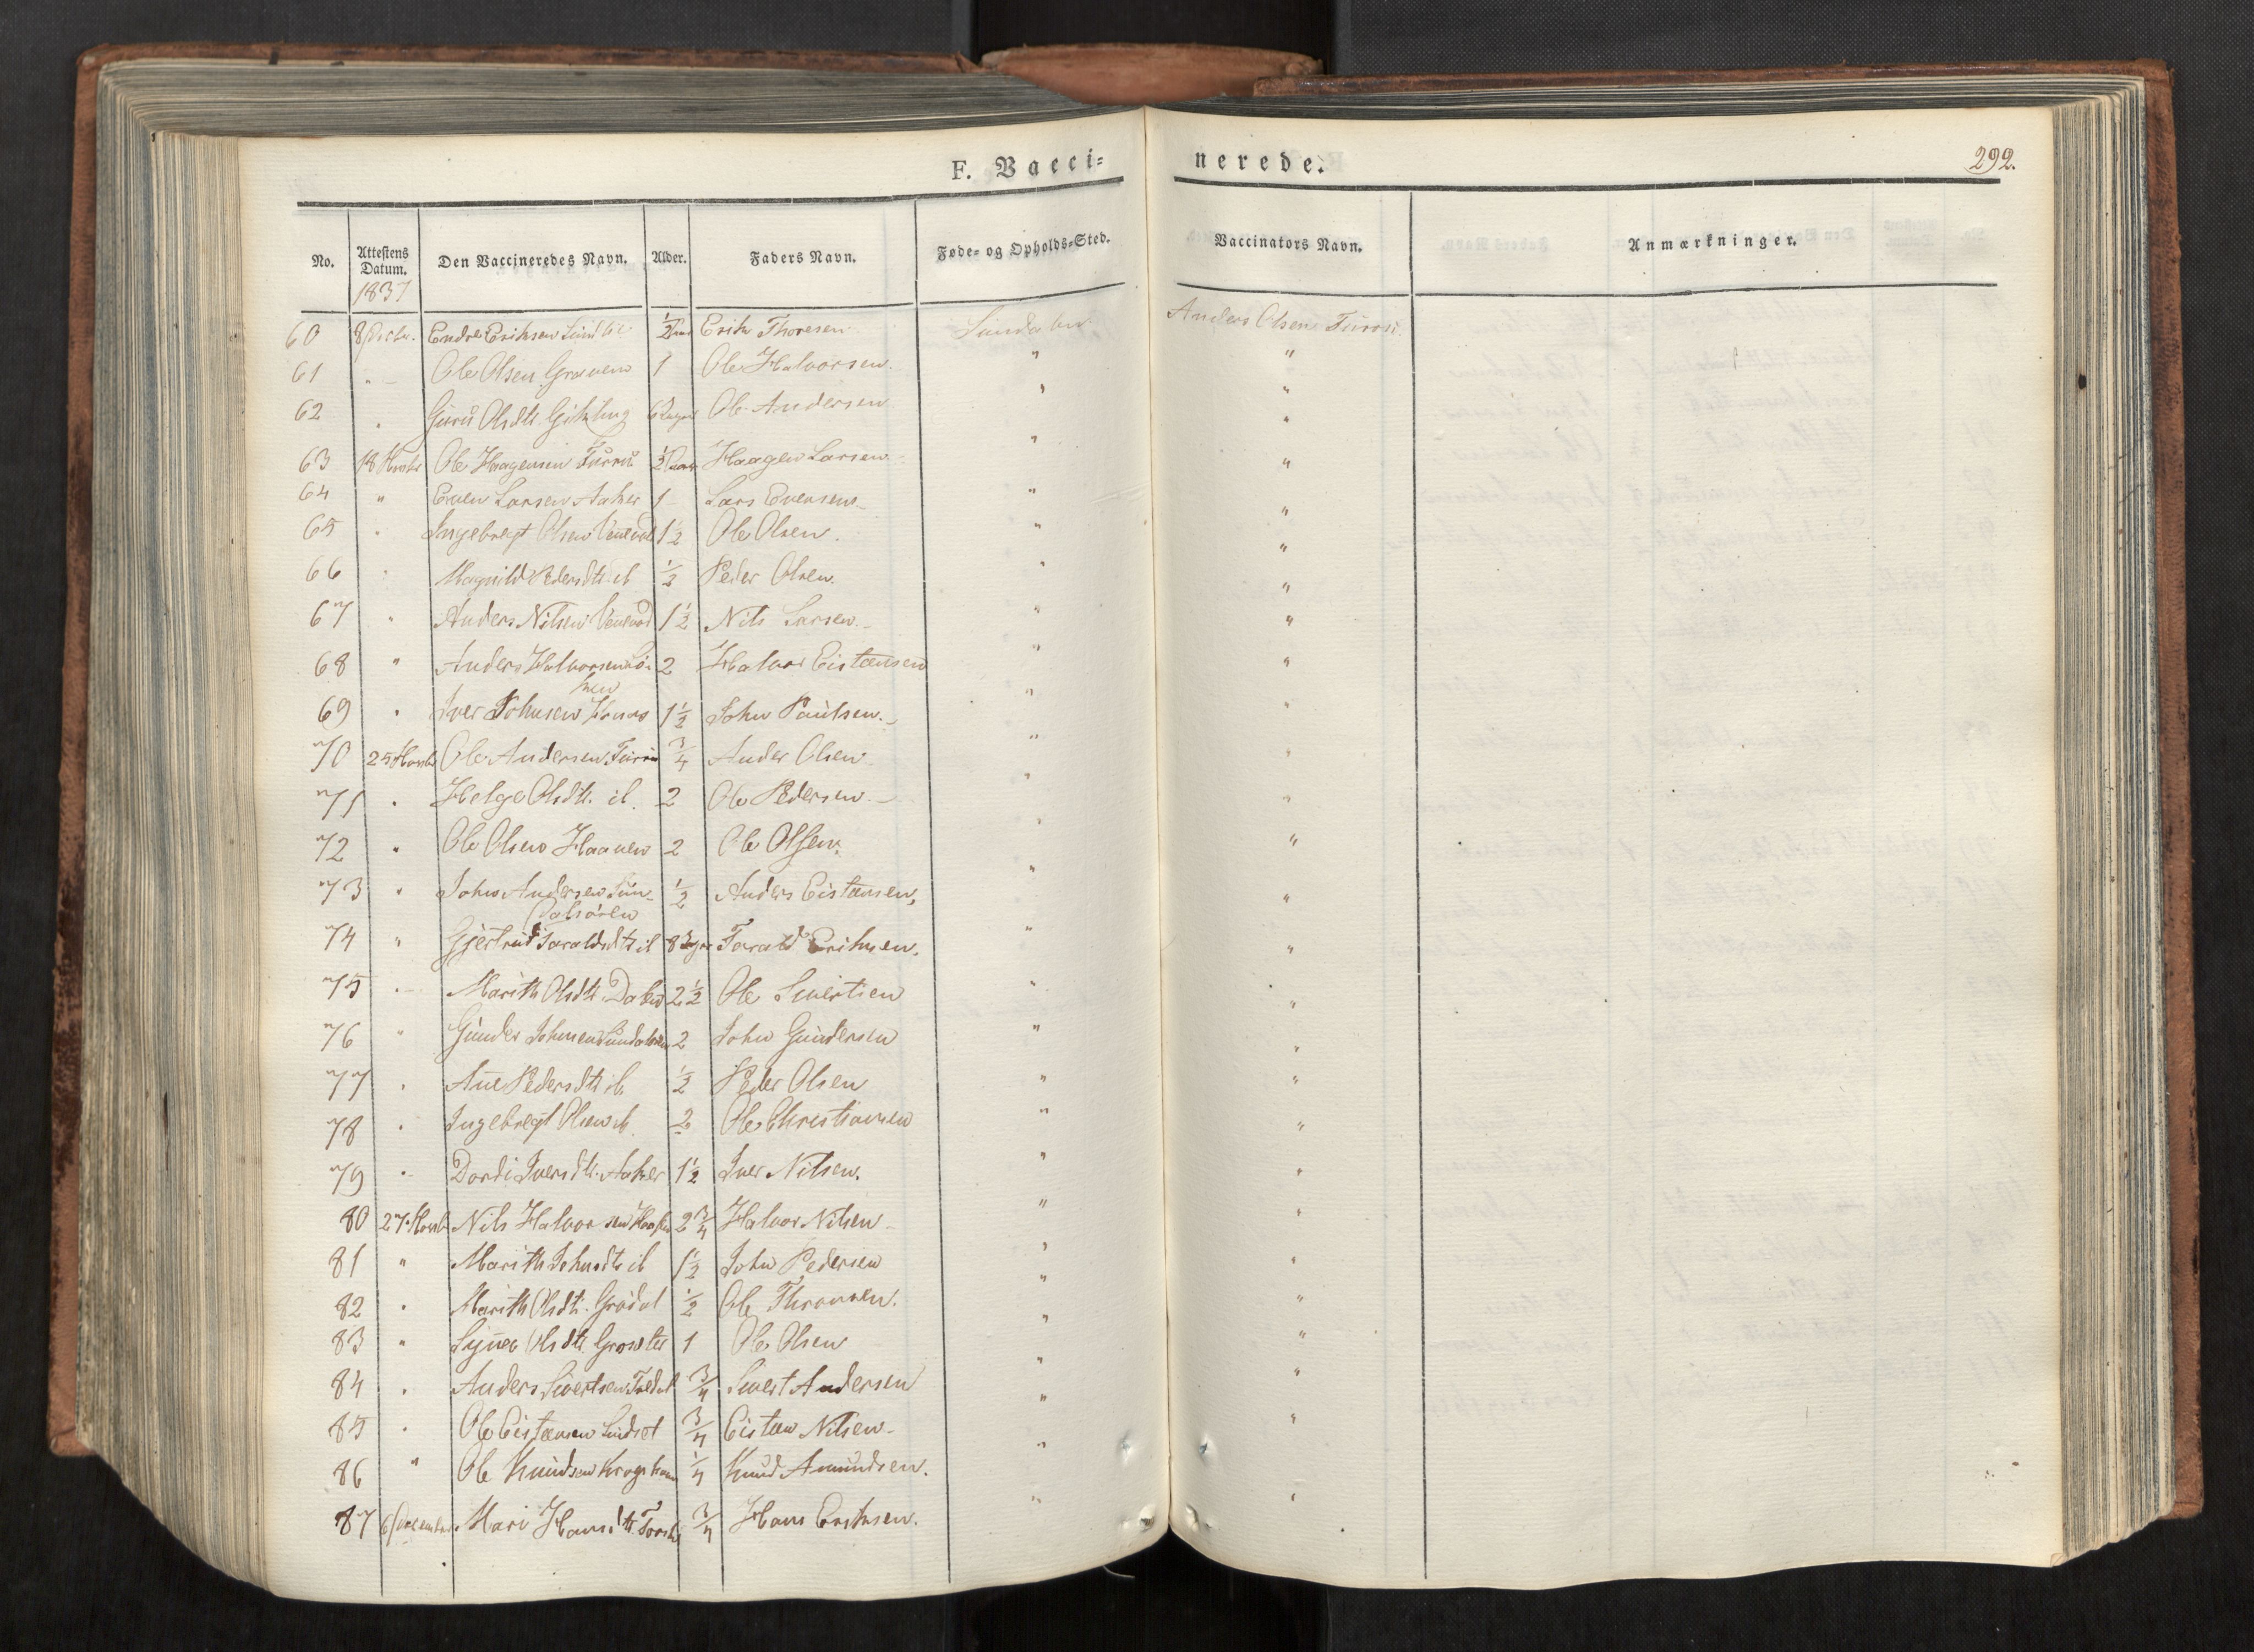 F. Vacci=
nerede.
292.
No. Attestens Datum. Den Vaccineredes Navn. Alder. Faders Navn. Føde- og Opholds-Sted. Vaccinators Navn. Anmærkninger.
1837
60 Endre Eriksen Erik Thoresen Sundalen Anders Olsen
61 " Ole Olsen Graven 1 Ole Halvorsen. " "
62 " Guru Olsdtr. Gikling Ole Andersen " "
63 18 Ole Haagensen Furru ½ Haagen Larsen " "
64 " Even Larsen Aaker 1 Lars Evensen " "
65 " Ingebregt Olsen 1½ Ole Olsen. " "
66 " Magnild Pedersdtr. ib ½ Peder Olsen. " "
67 " Anders Nilsen 1½ Nils Larsen. " "
68 " Anders Halvorsen 2 Halvor Eistensen " "
69 " Iver Johnsen 1½ John Paulsen. " "
70 25 Ole Andersen Furru ¾ Ander Olsen " "
71 " Helge Olsdtr. ib. 2 Ole Pedersen. " "
72 " Ole Olsen Haaven 2 Ole Olsen. " "
73 " John Andersen Sun-
dalsören ½ Anders Eistensen, " "
74 " Gjertrud Taraldsdtr ib 8 Tarald Eriksen. " "
75 " Marith Olsdtr. Dalen 2½ Ole Sivertsen " "
76 " Gunder Johnsen Sundalsören 2 John Gundersen " "
77 " Ane Pedersdtr ib. ½ Peder Olsen " "
78 " Ingebregt Olsen ib 2 Ole Christiansen " "
79 " Dordi Iversdtr. Aaker 1½ Iver Nilsen. " "
80 27 Nils Halvorsen 2¾ Halvor Nilsen " "
81 " Marith Johnsdtr ib 1½ John Pedersen " "
82 " Marith Olsdtr. Grödal ½ Ole " "
83 " Olsdtr. 1 Ole Olsen " "
84 " Anders Sivertsen ¾ Sivert Andersen " "
85 " Ole Eistensen Lindset ¾ Eisten Nilsen " "
86 " Ole Knudsen ¼ Knud Amundsen. " "
87 6 December Mari Hansdtr. ¾ Hans Eriksen. " "